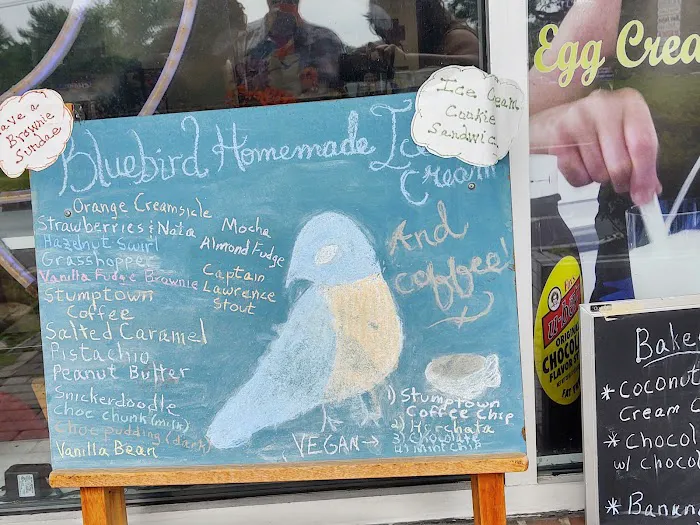 have a
Brownie
Sundae
Ice Cream
Cookie
Sandwich
Bluebird Homemade Ice
Cream
And
coffee!
Orange Creamsicle
Strawberries & Nata
Hazelnut Swirl
Grasshopper
Vanilla Fudge Brownie
Stumptown
Coffee
Salted Caramel
Pistachio
Peanut Butter
Snickerdoodle
Choc chunk (milk)
Choc pudding (dark)
Vanilla Bean
Mocha
Almond Fudge
Captain
Lawrence
Stout
VEGAN →
1) Stumptown
Coffee Chip
2) Horchata
3) Chocolate
w/ mint chip
Egg Crea
ORIGINAL
CHOCOL
FLAVOR S
FAT
Bake
* Coconut
Cream C
* Chocol
w/ choco
* Banan